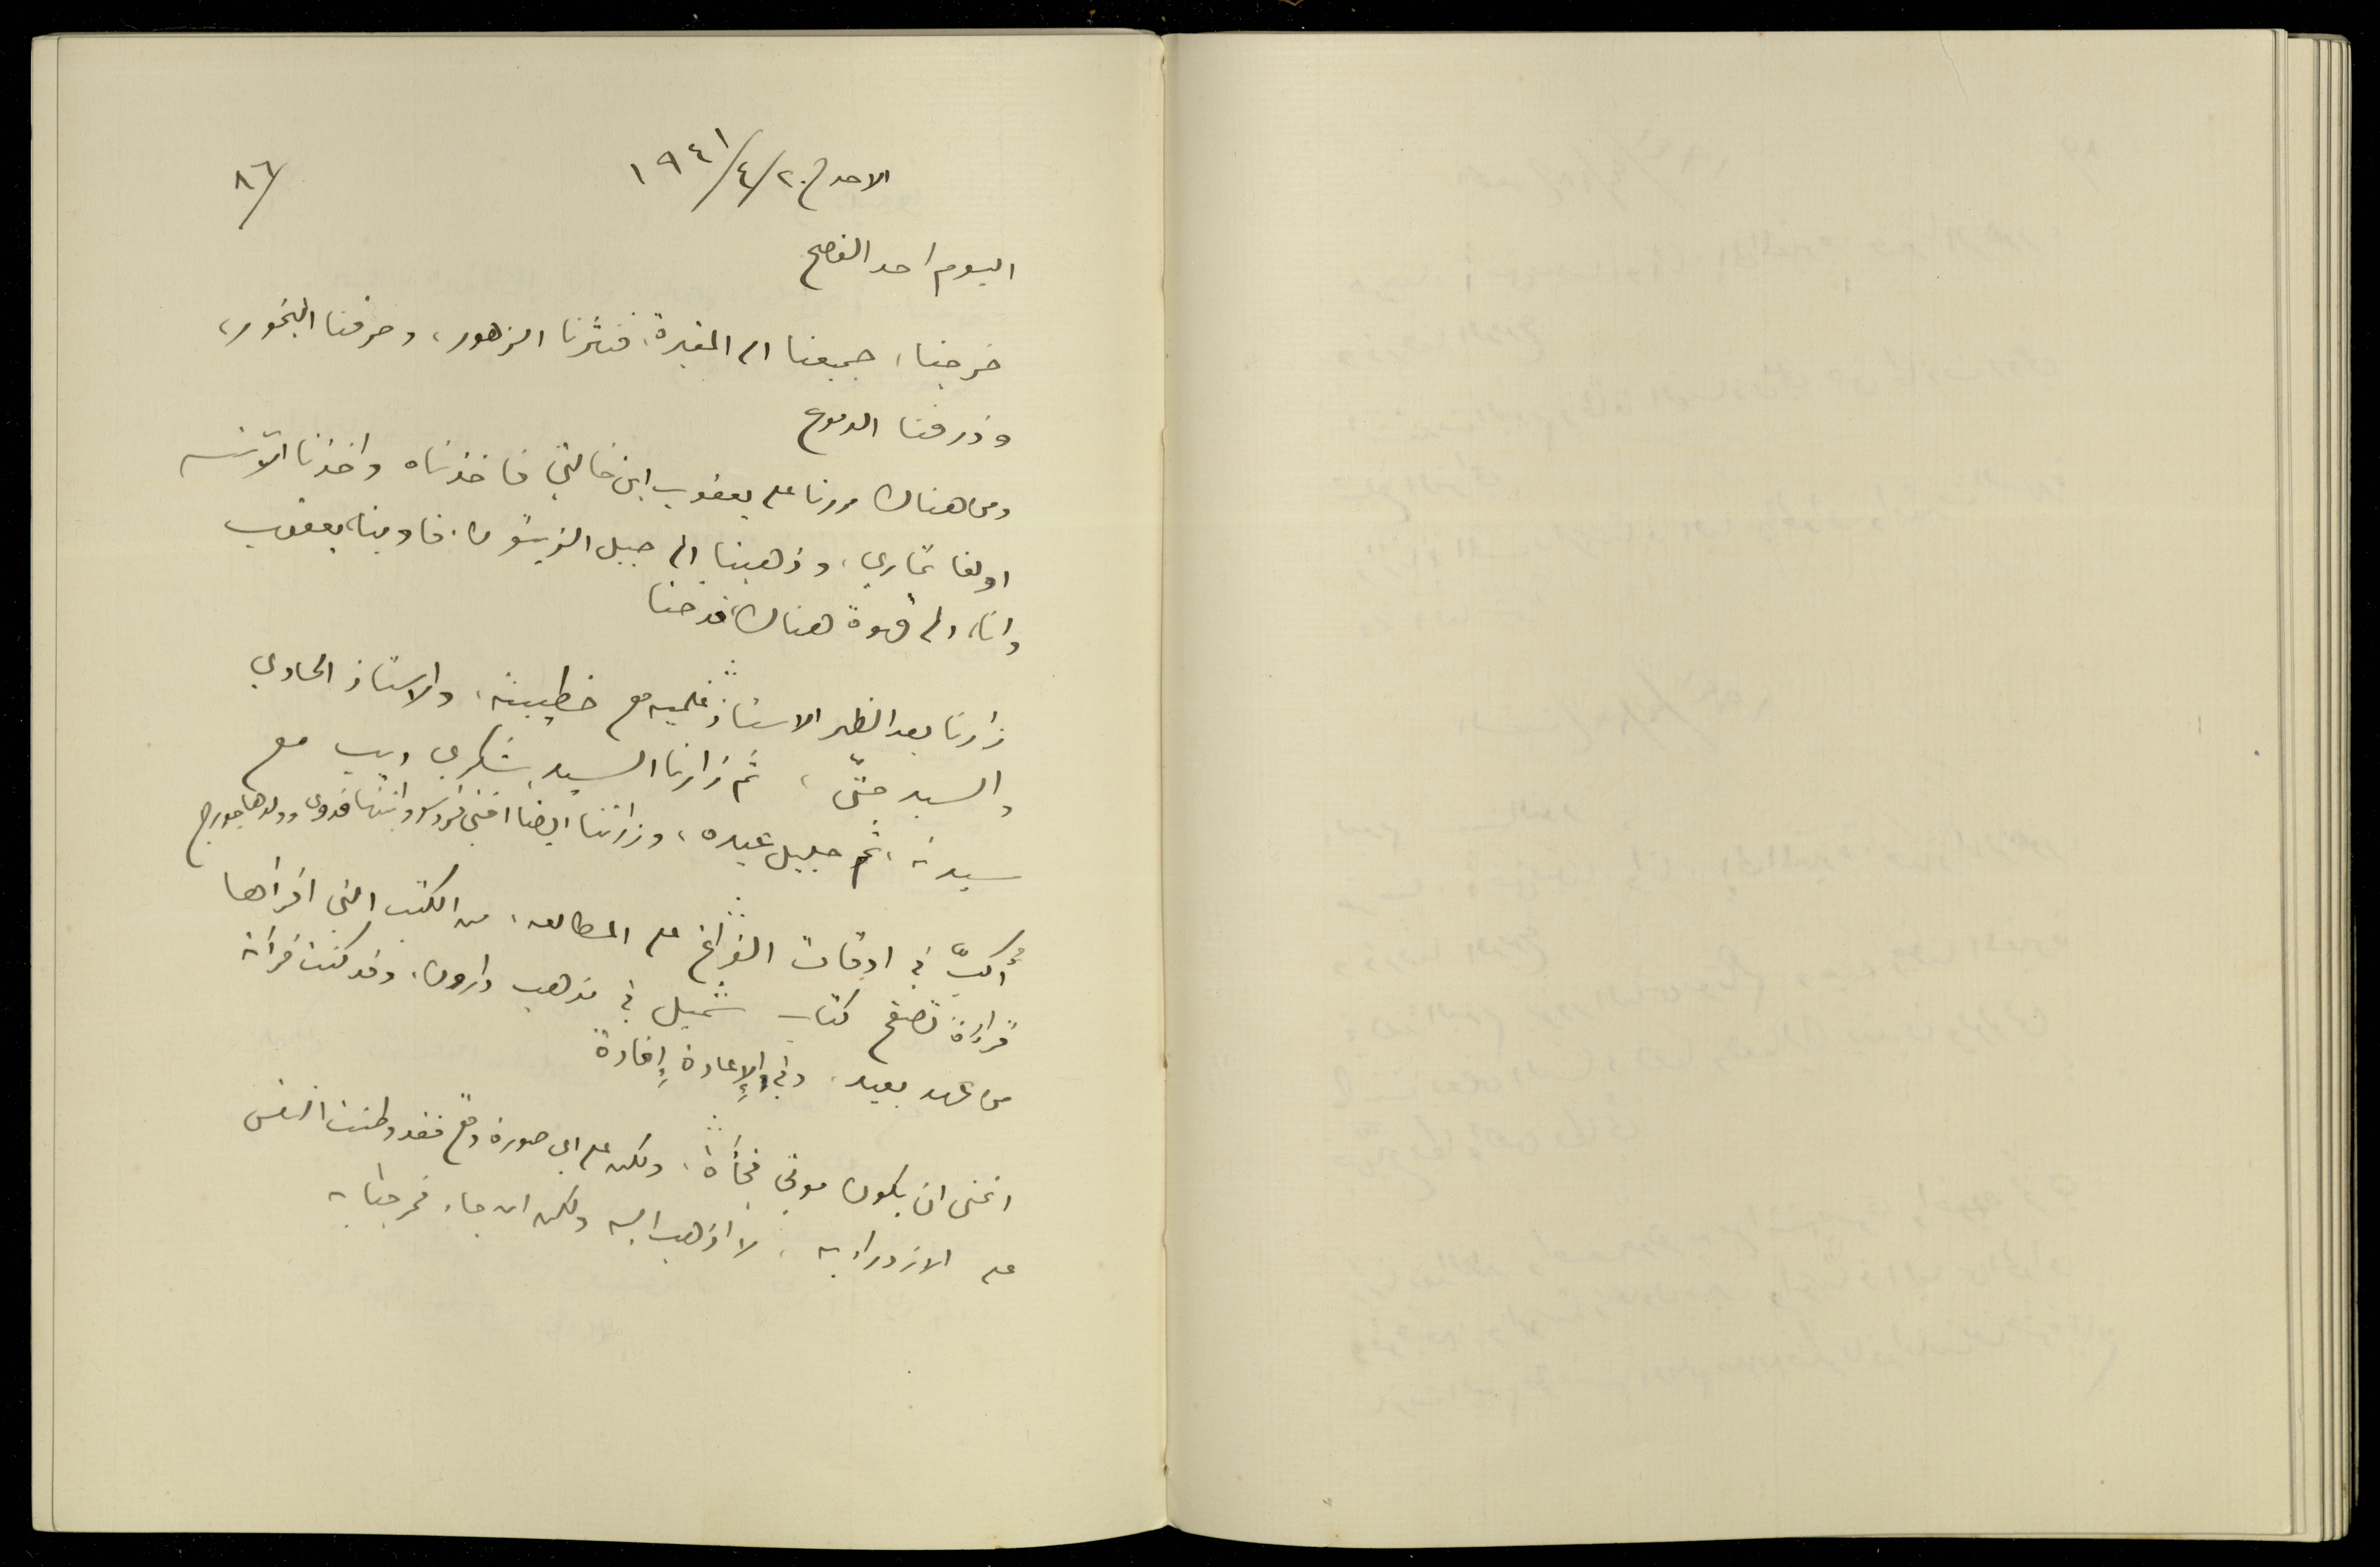 ٨٦/
الاحد في ٢٠/٤/١٩٤١
اليوم احد الفصح
خرجنا، جميعنا الى المقبرة، فنثرنا الزهور، وحرقنا البخور،
وذرفنا الدموع
ومن هناك مررنا على يعقوب ابن خالتي فاخذناه واخذنا الآنسه
اولغا تماري، وذهبنا الى جبل الزيتون. فاوينا، يعقوب
وانا، الى قهوة هناك،
زارنا بعد الظهر الاستاذ مع خطيبته، والاستاذ الحاوي
والسيد حتّى، ثم زارنا السيد شكري ديب مع
سيدته، ثم جليل عبده، وزارتنا ايضا اختي وابنتها فدوى وولدها جورج
أُكبّ في اوقات الفراغ على المطالعه، من الكتب التي اقرأها
قراءة تصفح كتاب شميل في مذهب دارون، وقد كنت قرأته
من عهد بعيد، وفي الإعادة إفادة
اتمنى ان يكون موتي فجأة، ولكن على اي صورة وقع فقد وطنت النفس
على الازدراء به، لا اذهب اليه ولكن ان جاء فمرحبا به